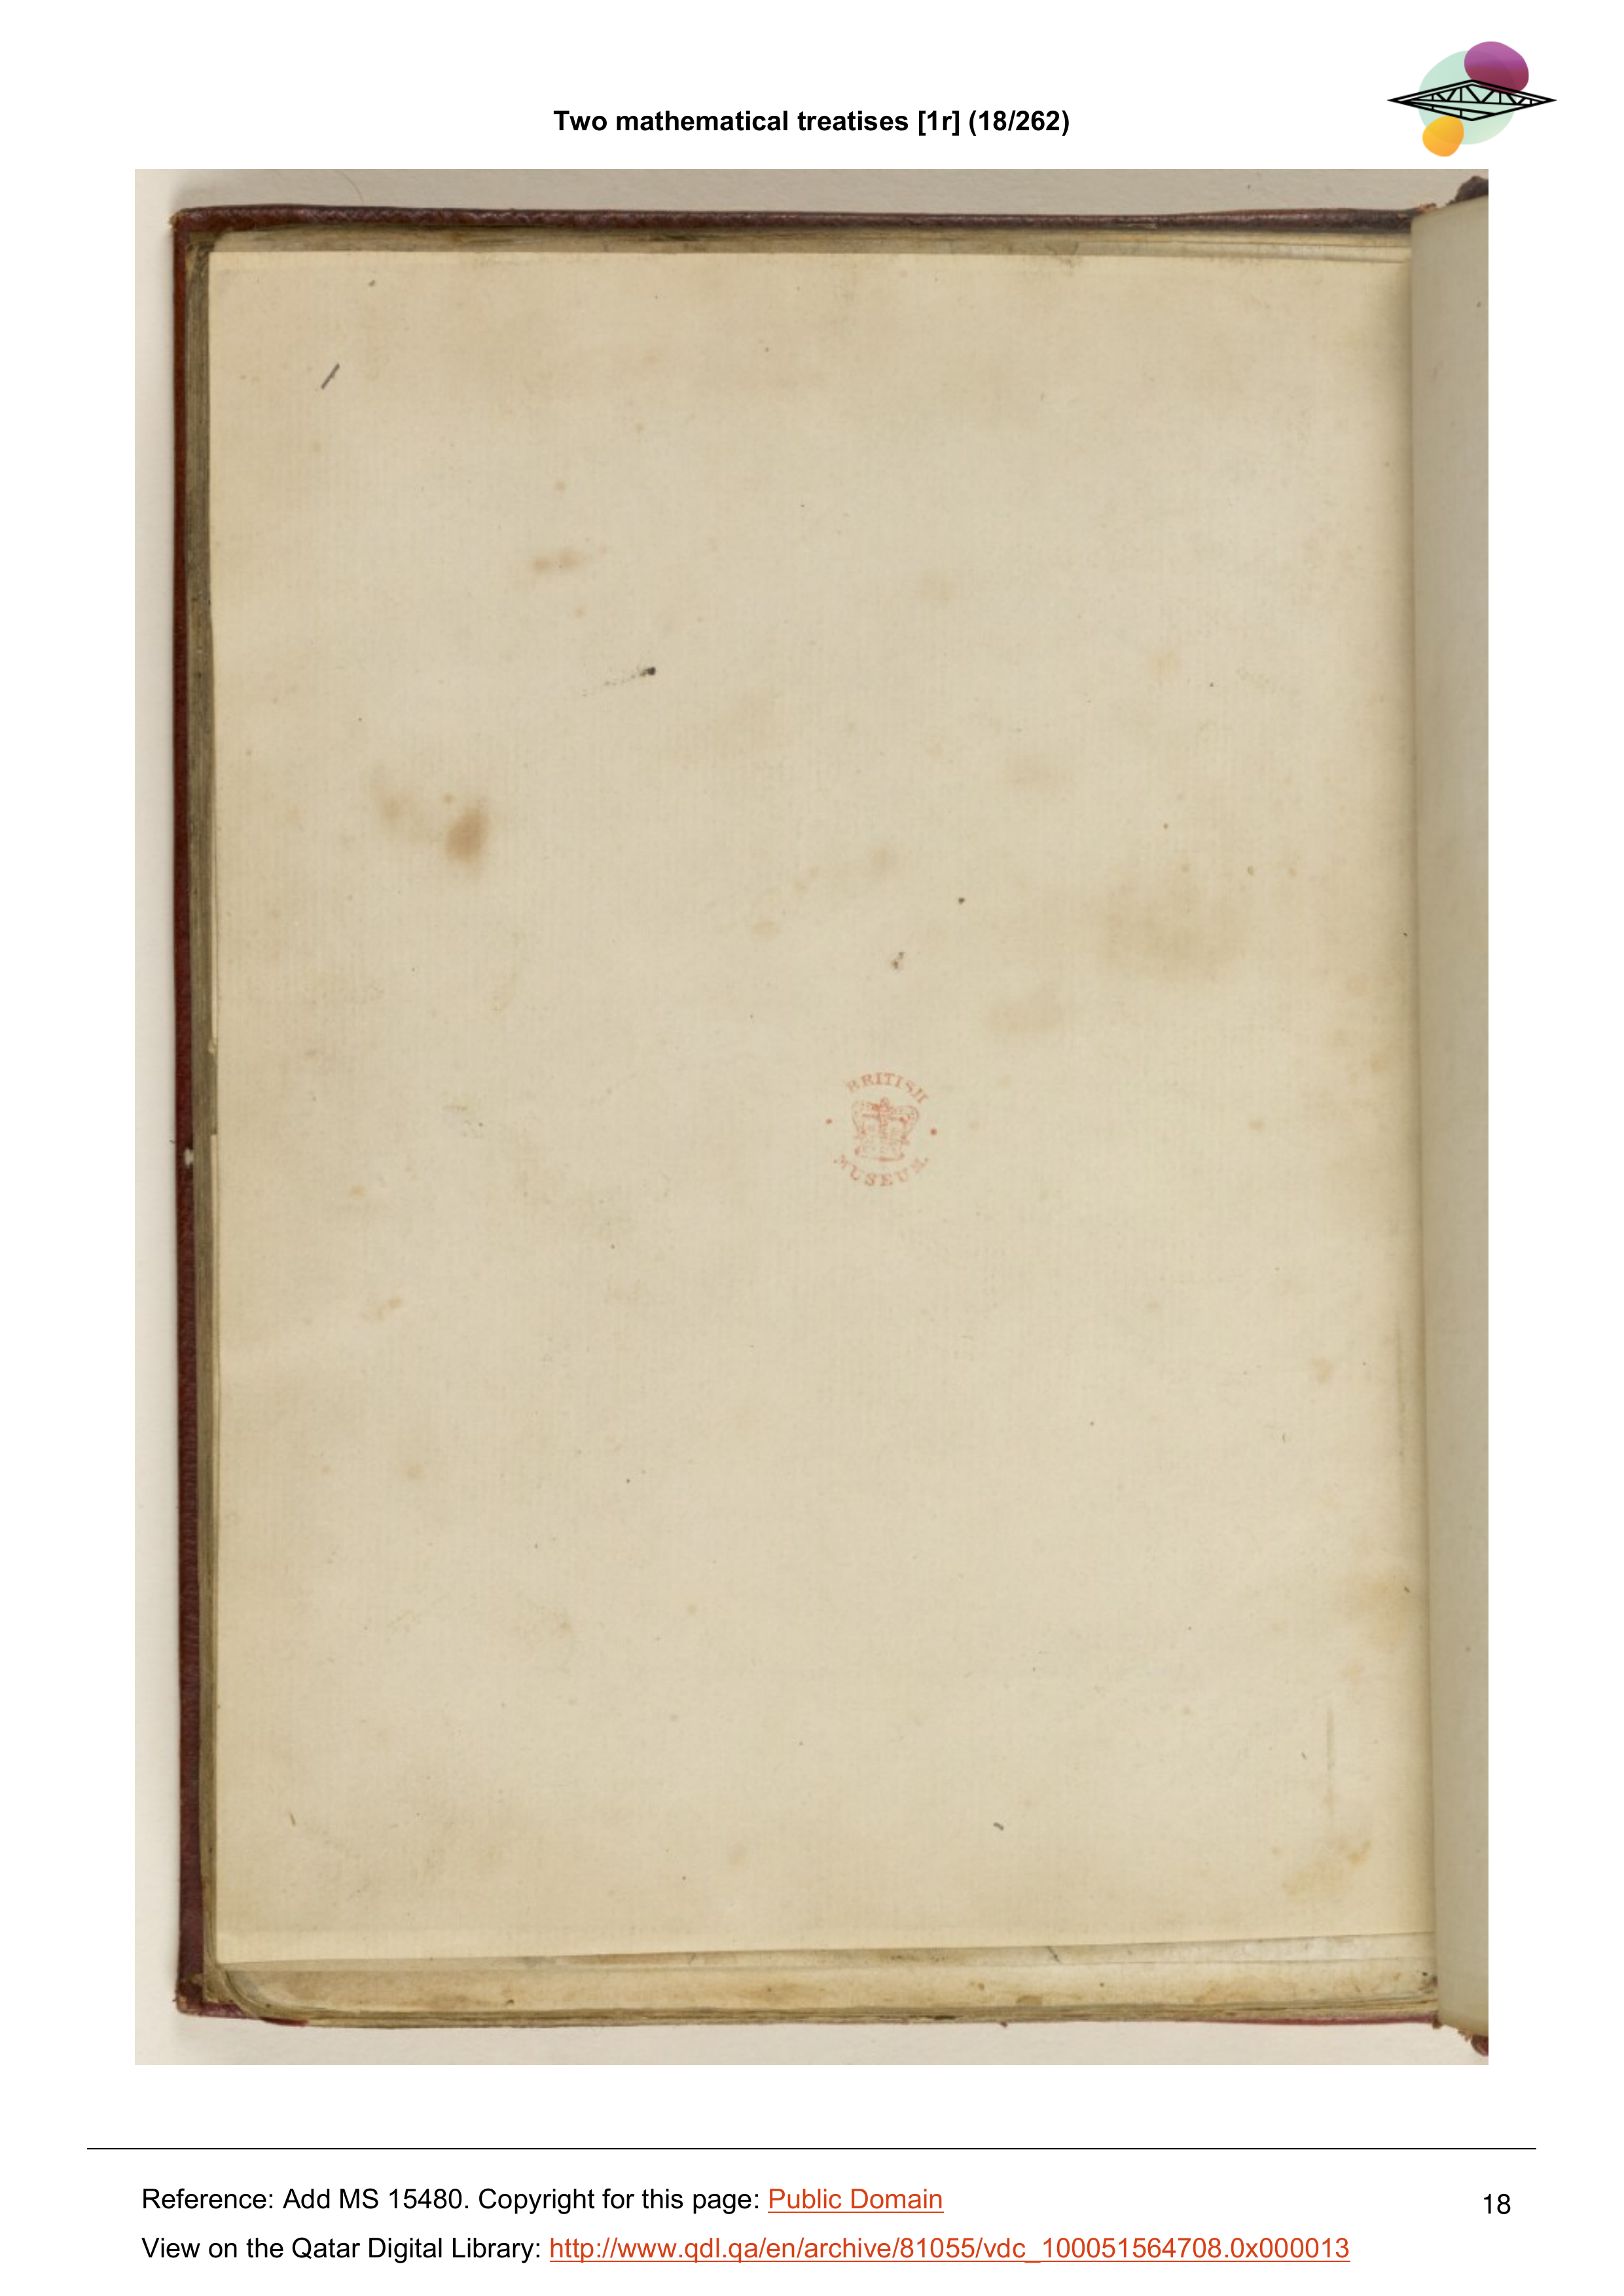 Two mathematical treatises [1r] (18/262)
BRITISH
MUSEUM
Reference: Add MS 15480. Copyright for this page: Public Domain
18
View on the Qatar Digital Library: http://www.qdl.qa/en/archive/81055/vdc_100051564708.0x000013